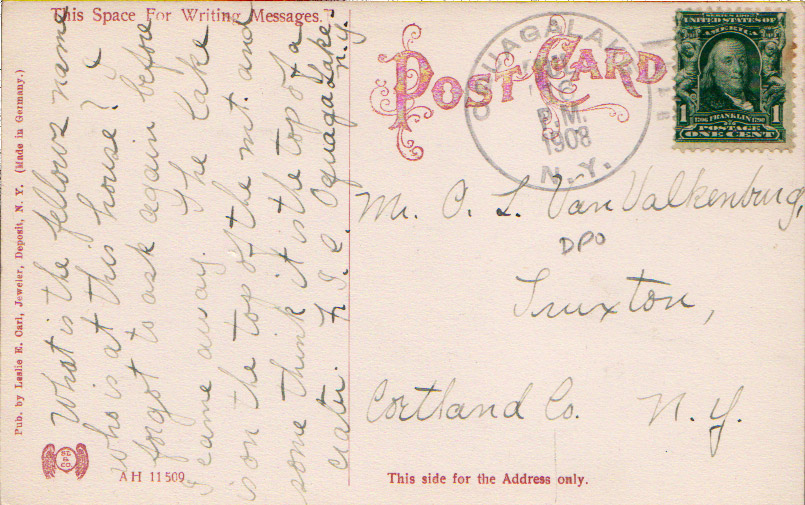 This Space For Writing Messages.
What is the fellows name
who is at this house? I
forgot to ask again before
I came away. The lake
is on the top of the mt. and
some think it is the top of a
crater.
Oquaga Lake
N.Y.
Pub. by Leslie E. Carl, Jeweler, Deposit, N. Y. (Made in Germany.)
AH 11509
POST CARD
P.M.
1908
N.Y.
SERIES 1902
UNITED STATES OF
AMERICA
1 1
1706 FRANKLIN 1790
POSTAGE
ONE CENT
Mr. O. L. Van Valkenburg,
DPO
Truxton,
Cortland Co. N.Y.
This side for the Address only.